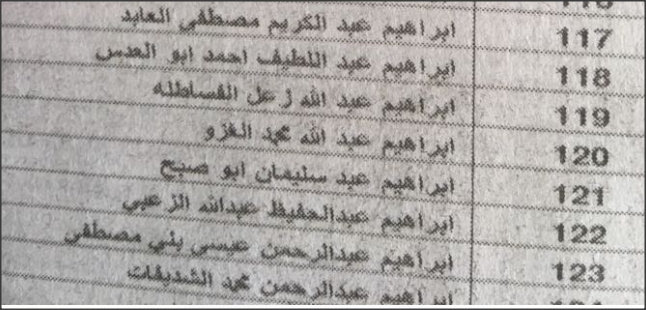 116
117 ابراهيم عبد الكريم مصطفى العابد
118 ابراهيم عبد اللطيف احمد ابو العدس
119 ابراهيم عبد الله زعل القساطله
120 ابراهيم عبد الله محمد الغزو
121 ابراهيم عبد سليمان ابو صبح
122 ابراهيم عبدالحفيظ عبدالله الزعبي
123 ابراهيم عبدالرحمن عيسى بني مصطفى
ابراهيم عبدالرحمن محمد الشديفات